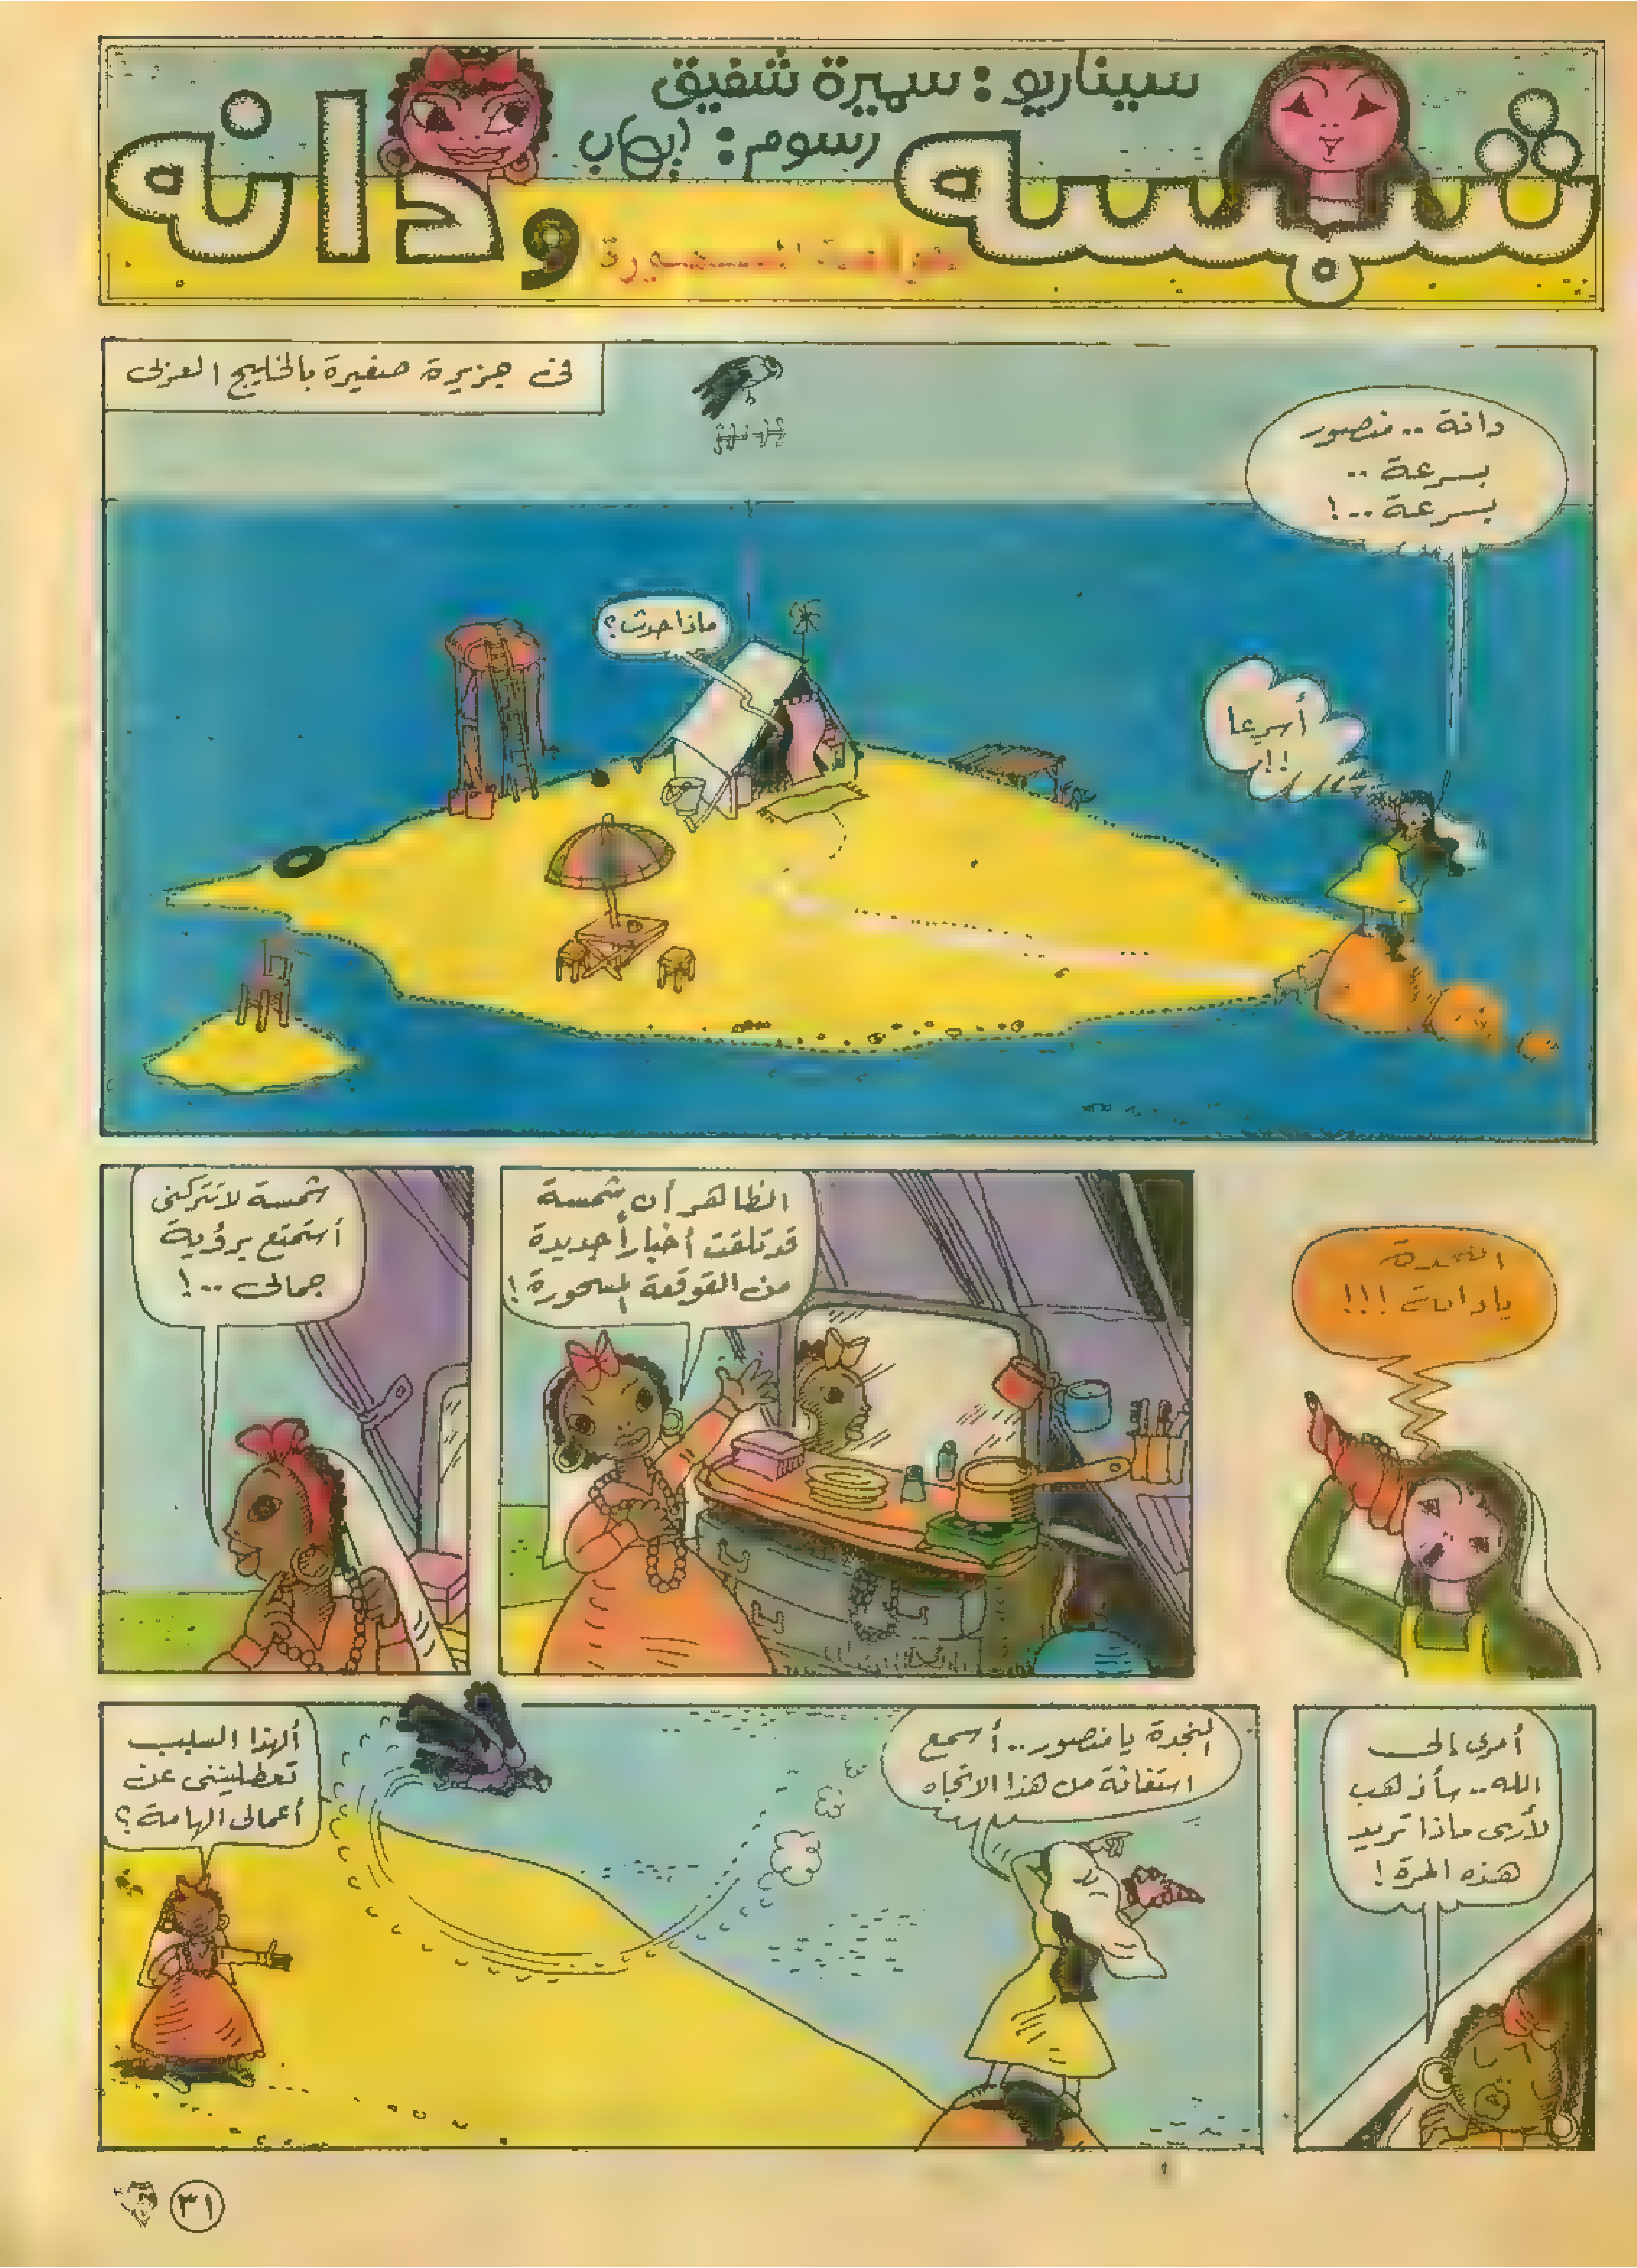 شمسه ودانه
سيناريو: سميرة شفيق
رسوم: إيهاب
فى جزيرة صغيرة بالخليج العربى
دانة .. منصور
بسرعة ..
بسرعة .. !
ماذا حدث؟
أسرعا
!!
النجدة
يا دانات !!!
الظاهر أن شمسة
قد تلقت أخباراً جديدة
من القوقعة المسحورة !
شمسة لا تتركنى
أستمتع برؤية
جمالى .. !
أمرى إلى
الله .. سأذهب
لأرى ماذا تريد
هذه المرة !
النجدة يا منصور .. أسمع
استغاثة من هذا الاتجاه
ألهذا السبب
تعطليننى عن
أعمالى الهامة ؟
٣١